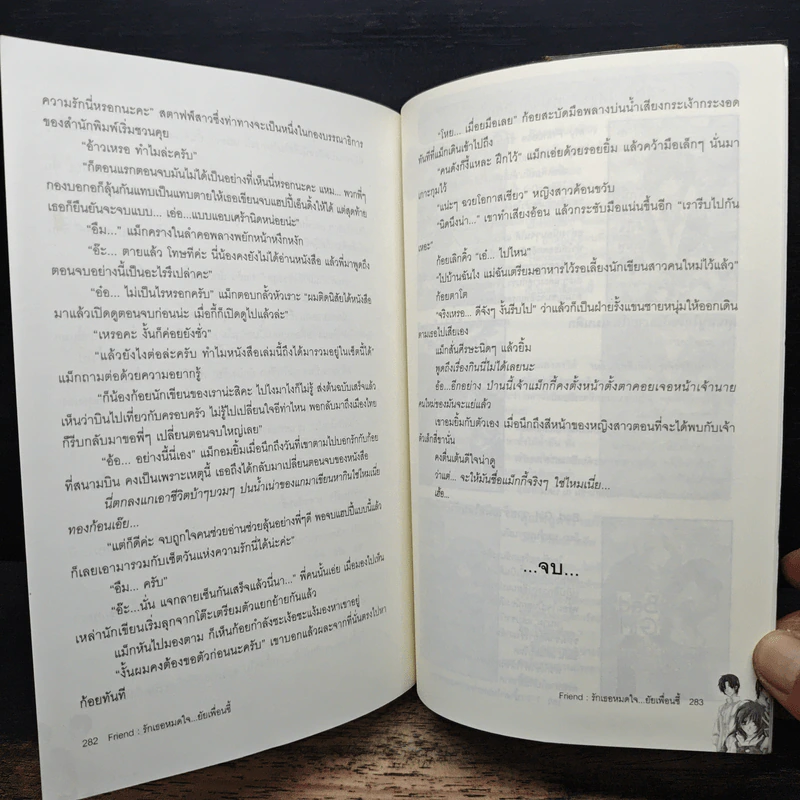 ความรักนี่หรอกนะคะ" สตาฟฟ์สาวซึ่งท่าทางจะเป็นหนึ่งในกองบรรณาธิการ
ของสำนักพิมพ์เริ่มชวนคุย
"อ้าวเหรอ ทำไมล่ะครับ"
"ก็ตอนแรกตอนจบมันไม่ได้เป็นอย่างที่เห็นนี่หรอกนะคะ แหม... พวกพี่ๆ
กองบอกอก็ลุ้นกันแทบเป็นแทบตายให้เธอเขียนจบแฮปปี้เอ็นดิ้งให้ได้ แต่สุดท้าย
เธอก็ยืนยันจะจบแบบ... เอ่อ...แบบแอบเศร้านิดหน่อยน่ะ"
"อืม..." แม็กครางในลำคอพลางพยักหน้าหงึกหงัก
"อ๊ะ... ตายแล้ว โทษทีค่ะ นี่น้องคงยังไม่ได้อ่านหนังสือ แล้วพี่มาพูดถึง
ตอนจบอย่างนี้เป็นอะไรรึเปล่าคะ"
"อ๋อ... ไม่เป็นไรหรอกครับ" แม็กตอบกลั้วหัวเราะ "ผมติดนิสัยได้หนังสือ
มาแล้วเปิดดูตอนจบก่อนน่ะ เมื่อกี้ก็เปิดดูไปแล้วล่ะ"
"เหรอคะ งั้นก็ค่อยยังชั่ว"
"แล้วยังไงต่อล่ะครับ ทำไมหนังสือเล่มนี้ถึงได้มารวมอยู่ในเซ็ตนี้ได้"
แม็กถามต่อด้วยความอยากรู้
"ก็น้องก้อยนักเขียนของเราน่ะสิคะ ไปไงมาไงก็ไม่รู้ ส่งต้นฉบับเสร็จแล้ว
เห็นว่าบินไปเที่ยวกับครอบครัว ไม่รู้ไปเปลี่ยนใจอีท่าไหน พอกลับมาถึงเมืองไทย
ก็รีบกลับมาขอพี่ๆ เปลี่ยนตอนจบใหญ่เลย"
"อ้อ... อย่างนี้นี่เอง" แม็กอมยิ้มเมื่อนึกถึงวันที่เขาตามไปบอกรักกับก้อย
ที่สนามบิน คงเป็นเพราะเหตุนี้ เธอถึงได้กลับมาเปลี่ยนตอนจบของหนังสือ
นี่ตกลงแกเอาชีวิตบ้าๆบวมๆ ปนน้ำเน่าของแกมาเขียนหากินใช่ไหมเนี่ย
ทองก้อนเอ๊ย...
"แต่ก็ดีค่ะ จบถูกใจคนช่วยอ่านช่วยลุ้นอย่างพี่ๆดี พอจบแฮปปี้แบบนี้แล้ว
ก็เลยเอามารวมกับเซ็ตวันแห่งความรักนี้ได้น่ะค่ะ"
"อืม... ครับ"
"อ๊ะ...นั่น แจกลายเซ็นกันเสร็จแล้วนี่นา..." พี่คนนั้นเอ่ย เมื่อมองไปเห็น
เหล่านักเขียนเริ่มลุกจากโต๊ะเตรียมตัวแยกย้ายกันแล้ว
แม็กหันไปมองตาม ก็เห็นก้อยกำลังชะเง้อชะแง้มองหาเขาอยู่
"งั้นผมคงต้องขอตัวก่อนนะครับ" เขาบอกแล้วผละจากที่นั่นตรงไปหา
ก้อยทันที
282 Friend : รักเธอหมดใจ...ยัยเพื่อนซี้
"โหย... เมื่อยมือเลย" ก้อยสะบัดมือพลางบ่นน้ำเสียงกระเง้ากระงอด
ทันทีที่แม็กเดินเข้าไปถึง
"คนดังก็งี้แหละ ฝึกไว้" แม็กเอ่ยด้วยรอยยิ้ม แล้วคว้ามือเล็กๆ นั่นมา
เกาะกุมไว้
"แน่ะๆ ฉวยโอกาสเชียว" หญิงสาวค้อนขวับ
"นิดนึงน่า..." เขาทำเสียงอ้อน แล้วกระชับมือแน่นขึ้นอีก "เรารีบไปกัน
เหอะ"
ก้อยเลิกคิ้ว "เอ๋... ไปไหน"
"ไปบ้านฉันไง แม่ฉันเตรียมอาหารไว้รอเลี้ยงนักเขียนสาวคนใหม่ไว้แล้ว"
ก้อยตาโต
"จริงเหรอ... ดีจังๆ งั้นรีบไป" ว่าแล้วก็เป็นฝ่ายรั้งแขนชายหนุ่มให้ออกเดิน
ตามเธอไปเสียเอง
แม็กสั่นศีรษะนิดๆ แล้วยิ้ม
พูดถึงเรื่องกินนี่ไม่ได้เลยนะ
อ้อ...อีกอย่าง ป่านนี้เจ้าแม็กกี้คงตั้งหน้าตั้งตาคอยเจอหน้าเจ้านาย
คนใหม่ของมันจะแย่แล้ว
เขาอมยิ้มกับตัวเอง เมื่อนึกถึงสีหน้าของหญิงสาวตอนที่จะได้พบกับเจ้า
ตัวสี่ขานั่น
คงตื่นเต้นดีใจน่าดู
ว่าแต่... จะให้มันชื่อแม็กกี้จริงๆ ใช่ไหมเนี่ย...
เฮ้อ...
...จบ...
Friend : รักเธอหมดใจ...ยัยเพื่อนซี้ 283